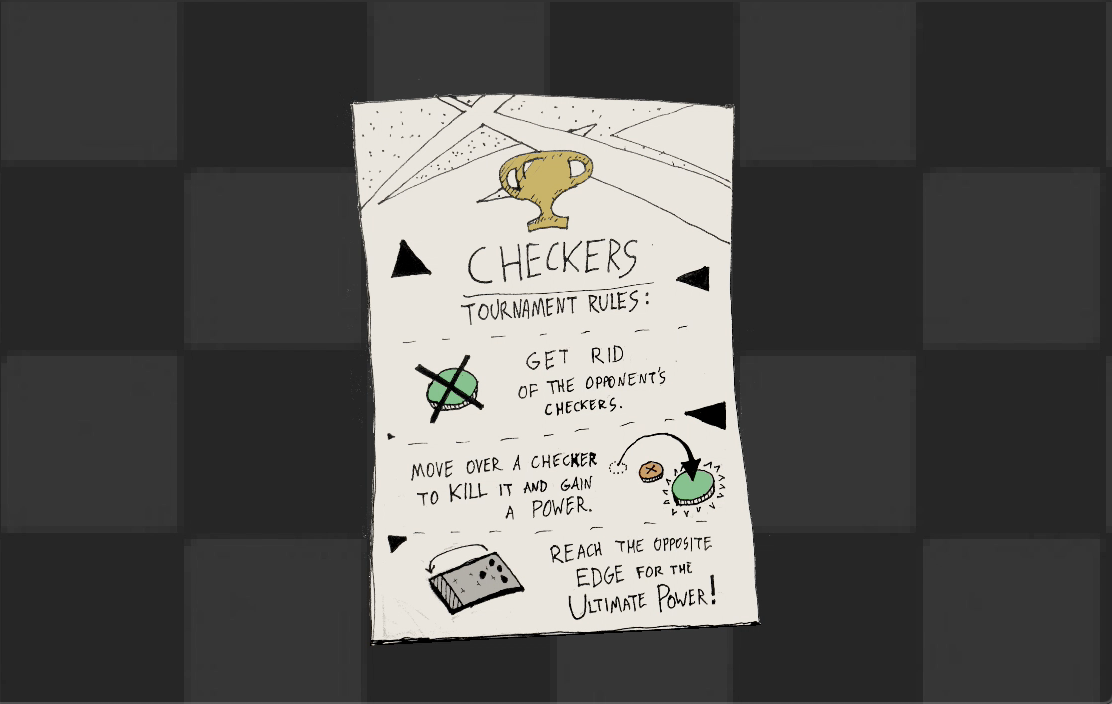 CHECKERS
TOURNAMENT RULES:
GET RID
OF THE OPPONENT'S
CHECKERS.
MOVE OVER A CHECKER
TO KILL IT AND GAIN
A POWER.
REACH THE OPPOSITE
EDGE FOR THE
ULTIMATE POWER!